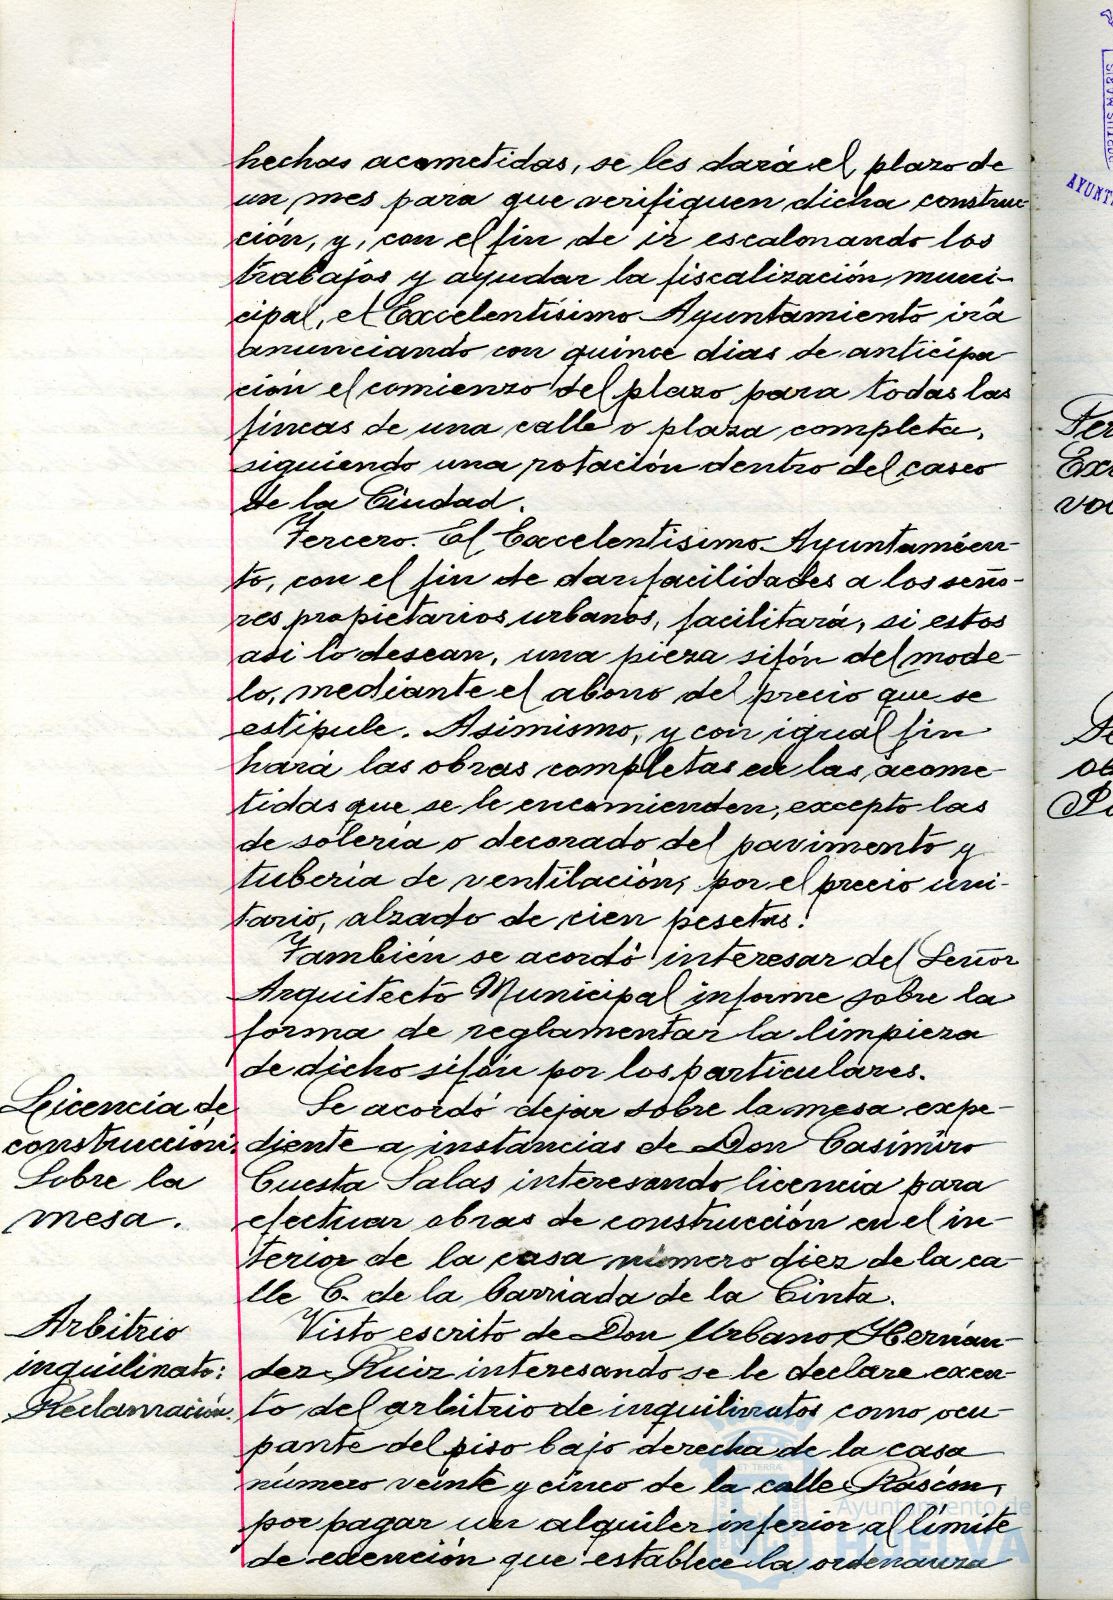 hechas acometidas, se les dará el plazo de
un mes para que verifiquen dicha construc-
ción, y, con el fin de ir escalonando los
trabajos y ayudar la fiscalización muni-
cipal, el Excelentísimo Ayuntamiento irá
anunciando con quince dias de anticipa
ción el comienzo del plazo para todas las
fincas de una calle o plaza completa,
siguiendo una rotación dentro del casco
de la Ciudad.
Tercero. El Excelentísimo Ayuntamien-
to, con el fin de dar facilidades a los seño-
res propietarios urbanos, facilitará, si estos
asi lo desean, una pieza sifón del mode-
lo, mediante el abono del precio que se
estipule. Asimismo, y con igual fin
hará las obras completas en las acome-
tidas que se le encomienden, excepto las
de solería o decorado del pavimento y
tubería de ventilación, por el precio uni-
tario, alzado de cien pesetas.
También se acordó interesar del Señor
Arquitecto Municipal informe sobre la
forma de reglamentar la limpieza
de dicho sifón por los particulares.
Licencia de
construcción.
Sobre la
mesa.
Se acordó dejar sobre la mesa expe-
diente a instancias de Don Casimiro
Cuesta Salas interesando licencia para
efectuar obras de construcción en el in-
terior de la casa número diez de la ca-
lle C. de la barriada de la Cinta.
Arbitrio
inquilinato:
Reclamación.
Visto escrito de Don Urbano Hernán-
dez Ruiz interesando se le declare exen-
to del arbitrio de inquilinatos como ocu-
pante del piso bajo derecha de la casa
número veinte y cinco de la calle Rascón,
por pagar un alquiler inferior al límite
de exención que establece la ordenanza
Ayuntamiento de
HUELVA